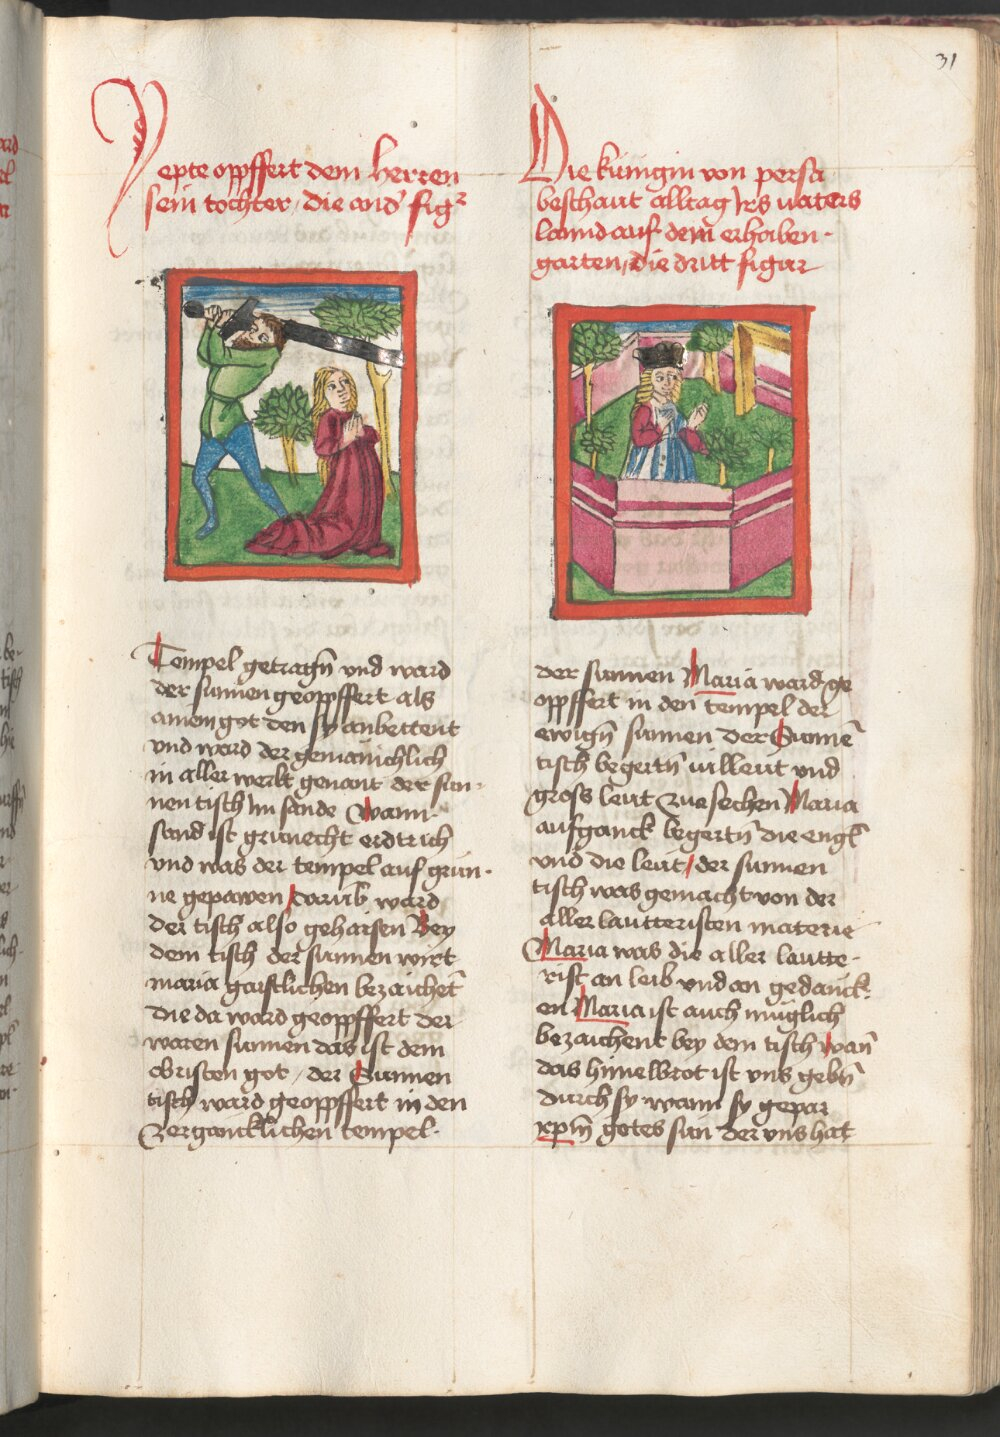 31
Yepte opffert dem herren
sein tochter / die and' figr
Tempel getragn̄ vnd ward
der sunnen geopffert als
ainem got den sy anbettent
vnd ward der gemainichlich
in aller werlt genant der sun-
nen tisch im sande Wann
sand ist grunecht erdtrich
vnd was der tempel auf grun-
ne gepawen / darub ward
der tisch also gehaisen Bey
dem tisch der sunnen wirt
maria gaistlichen bezaichet̄
die da ward geopffert der
waren sunnen das ist dem
obristen got / der Sunnen
tisch ward geopffert in den
zergancklichen tempel.
Die kunigin von persa
beschaut alltag irs vaters
lannd auf dem erhaben-
garten / die dritt figur
der sunnen Maria ward ge
opffert in den tempel der
ewign̄ sunnen Der Sunnē
tisch begertn̄ vil leut vnd
gross leut zuesechen Maria
aufganck begertn̄ die engl
vnd die leut / der sunnen
tisch was gemacht von der
aller lautteristen materie
Maria was die aller lautte-
rist an leib vnd an gedanck-
en Maria ist auch muglich
bezaichent bey dem tisch wan̄
das himelbrot ist vns gebn̄
durch sy wann sy gepar
xpm̄ gotes sun der vns hat